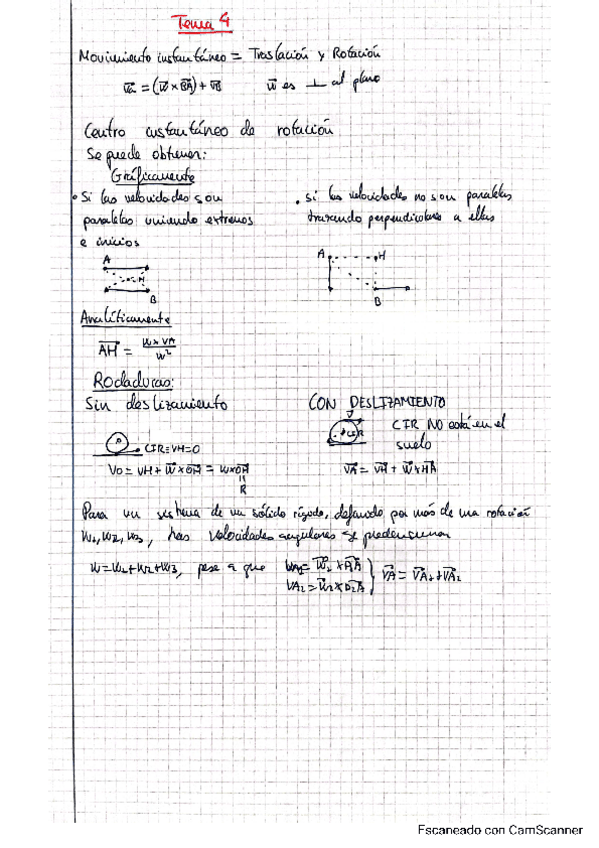 Tema 4
Movimiento instantáneo = Traslación y Rotación
va = (w × BA) + vB    w es ⊥ al plano
Centro instantáneo de rotación
Se puede obtener:
Gráficamente
• Si las velocidades son
paralelas uniendo extremos
e inicios
• si las velocidades no son paralelas
trazando perpendiculares a ellas
A
H
B
A
H
B
Analíticamente
AH = w × vA / w²
Rodaduras:
Sin deslizamiento
CIR ≡ vH = 0
Vo = vH + w × OH = w × OH
R
CON DESLIZAMIENTO
CIR
CIR NO está en el
suelo
vA = vH + w × HA
Para un sistema de un sólido rígido, definido por más de una rotación
w1, w2, w3, las velocidades angulares se pueden sumar
w = w1 + w2 + w3, pese a que
vA2 = w2 × O2A
vA = vA1 + vA2
Escaneado con CamScanner